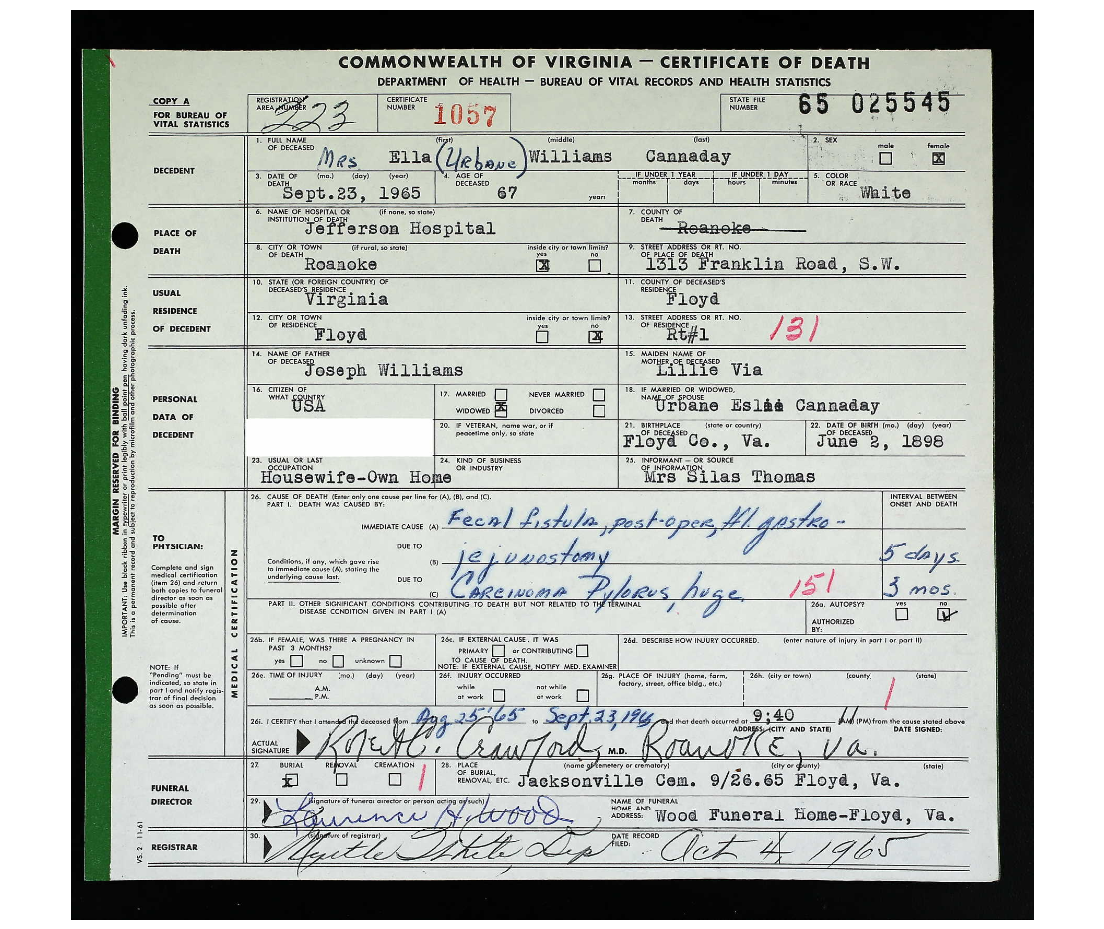 COMMONWEALTH OF VIRGINIA — CERTIFICATE OF DEATH
DEPARTMENT OF HEALTH — BUREAU OF VITAL RECORDS AND HEALTH STATISTICS
COPY A
FOR BUREAU OF
VITAL STATISTICS
REGISTRATION
AREA NUMBER 223
CERTIFICATE
NUMBER 1057
STATE FILE
NUMBER 65 025545
DECEDENT
1. FULL NAME (first) (middle) (last)
OF DECEASED Mrs Ella (Urbane) Williams Cannaday
2. SEX male female X
3. DATE OF (mo.) (day) (year)
DEATH Sept.23, 1965
4. AGE OF
DECEASED 67 years
IF UNDER 1 YEAR
months days
IF UNDER 1 DAY
hours minutes
5. COLOR
OR RACE White
PLACE OF
DEATH
6. NAME OF HOSPITAL OR (if none, so state)
INSTITUTION OF DEATH Jefferson Hospital
7. COUNTY OF
DEATH Roanoke
8. CITY OR TOWN (if rural, so state)
OF DEATH Roanoke
inside city or town limits?
yes X no
9. STREET ADDRESS OR RT. NO.
OF PLACE OF DEATH 1313 Franklin Road, S.W.
USUAL
RESIDENCE
OF DECEDENT
10. STATE (OR FOREIGN COUNTRY) OF
DECEASED'S RESIDENCE Virginia
11. COUNTY OF DECEASED'S
RESIDENCE Floyd
12. CITY OR TOWN
OF RESIDENCE Floyd
inside city or town limits?
yes no X
13. STREET ADDRESS OR RT. NO.
OF RESIDENCE Rt#1 131
PERSONAL
DATA OF
DECEDENT
14. NAME OF FATHER
OF DECEASED Joseph Williams
15. MAIDEN NAME OF
MOTHER OF DECEASED Lillie Via
16. CITIZEN OF
WHAT COUNTRY USA
17. MARRIED NEVER MARRIED
WIDOWED X DIVORCED
18. IF MARRIED OR WIDOWED,
NAME OF SPOUSE Urbane Cannaday
20. IF VETERAN, name war, or if
peacetime only, so state
21. BIRTHPLACE (state or country)
OF DECEASED Floyd Co., Va.
22. DATE OF BIRTH (mo.) (day) (year)
June 2, 1898
23. USUAL OR LAST
OCCUPATION Housewife-Own Home
24. KIND OF BUSINESS
OR INDUSTRY
25. INFORMANT — OR SOURCE
OF INFORMATION Mrs Silas Thomas
MARGIN RESERVED FOR BINDING
IMPORTANT: Use black ribbon in typewriter or print legibly with ball point pen having dark unfading ink.
This is a permanent record and subject to reproduction by microfilm and other photographic process.
TO
PHYSICIAN:
Complete and sign
medical certification
(item 26) and return
both copies to funeral
director as soon as
possible after
determination
of cause.
NOTE: If
"Pending" must be
indicated, so state in
part I and notify regis-
trar of final decision
as soon as possible.
MEDICAL CERTIFICATION
26. CAUSE OF DEATH (Enter only one cause per line for (A), (B), and (C).
PART I. DEATH WAS CAUSED BY:
INTERVAL BETWEEN
ONSET AND DEATH
IMMEDIATE CAUSE (A) Fecal fistula, post-oper, gastro-
DUE TO
Conditions, if any, which gave rise
to immediate cause (A), stating the
underlying cause last.
(B) jejunostomy 5 days.
DUE TO
(C) Carcinoma Pylorus, huge. 151 3 mos.
PART II. OTHER SIGNIFICANT CONDITIONS CONTRIBUTING TO DEATH BUT NOT RELATED TO THE TERMINAL
DISEASE CONDITION GIVEN IN PART I (A)
26a. AUTOPSY? yes no
AUTHORIZED
BY:
26b. IF FEMALE, WAS THERE A PREGNANCY IN
PAST 3 MONTHS?
yes no unknown
26c. IF EXTERNAL CAUSE, IT WAS
PRIMARY or CONTRIBUTING
TO CAUSE OF DEATH.
NOTE: IF EXTERNAL CAUSE, NOTIFY MED. EXAMINER
26d. DESCRIBE HOW INJURY OCCURRED. (enter nature of injury in part I or part II)
26e. TIME OF INJURY (mo.) (day) (year)
A.M.
P.M.
26f. INJURY OCCURRED
while at work not while at work
26g. PLACE OF INJURY (home, farm,
factory, street, office bldg., etc.)
26h. (city or town) (county) (state)
26i. I CERTIFY that I attended the deceased from Aug 25 '65 to Sept. 23, 196 and that death occurred at 9:40 (AM) (PM) from the cause stated above
ADDRESS: (CITY AND STATE) DATE SIGNED:
ACTUAL
SIGNATURE Robt C. Crawford, M.D. Roanoke, Va.
FUNERAL
DIRECTOR
27. BURIAL X REMOVAL CREMATION
28. PLACE (name of cemetery or crematory) (city or county) (state)
OF BURIAL,
REMOVAL, ETC. Jacksonville Cem. 9/26.65 Floyd, Va.
29. (signature of funeral director or person acting as such)
Lawrence H. Wood
NAME OF FUNERAL
HOME AND
ADDRESS: Wood Funeral Home-Floyd, Va.
REGISTRAR
30. (signature of registrar)
Myrtle White, Dep
DATE RECORD
FILED: Oct 4, 1965
VS. 2 11-61